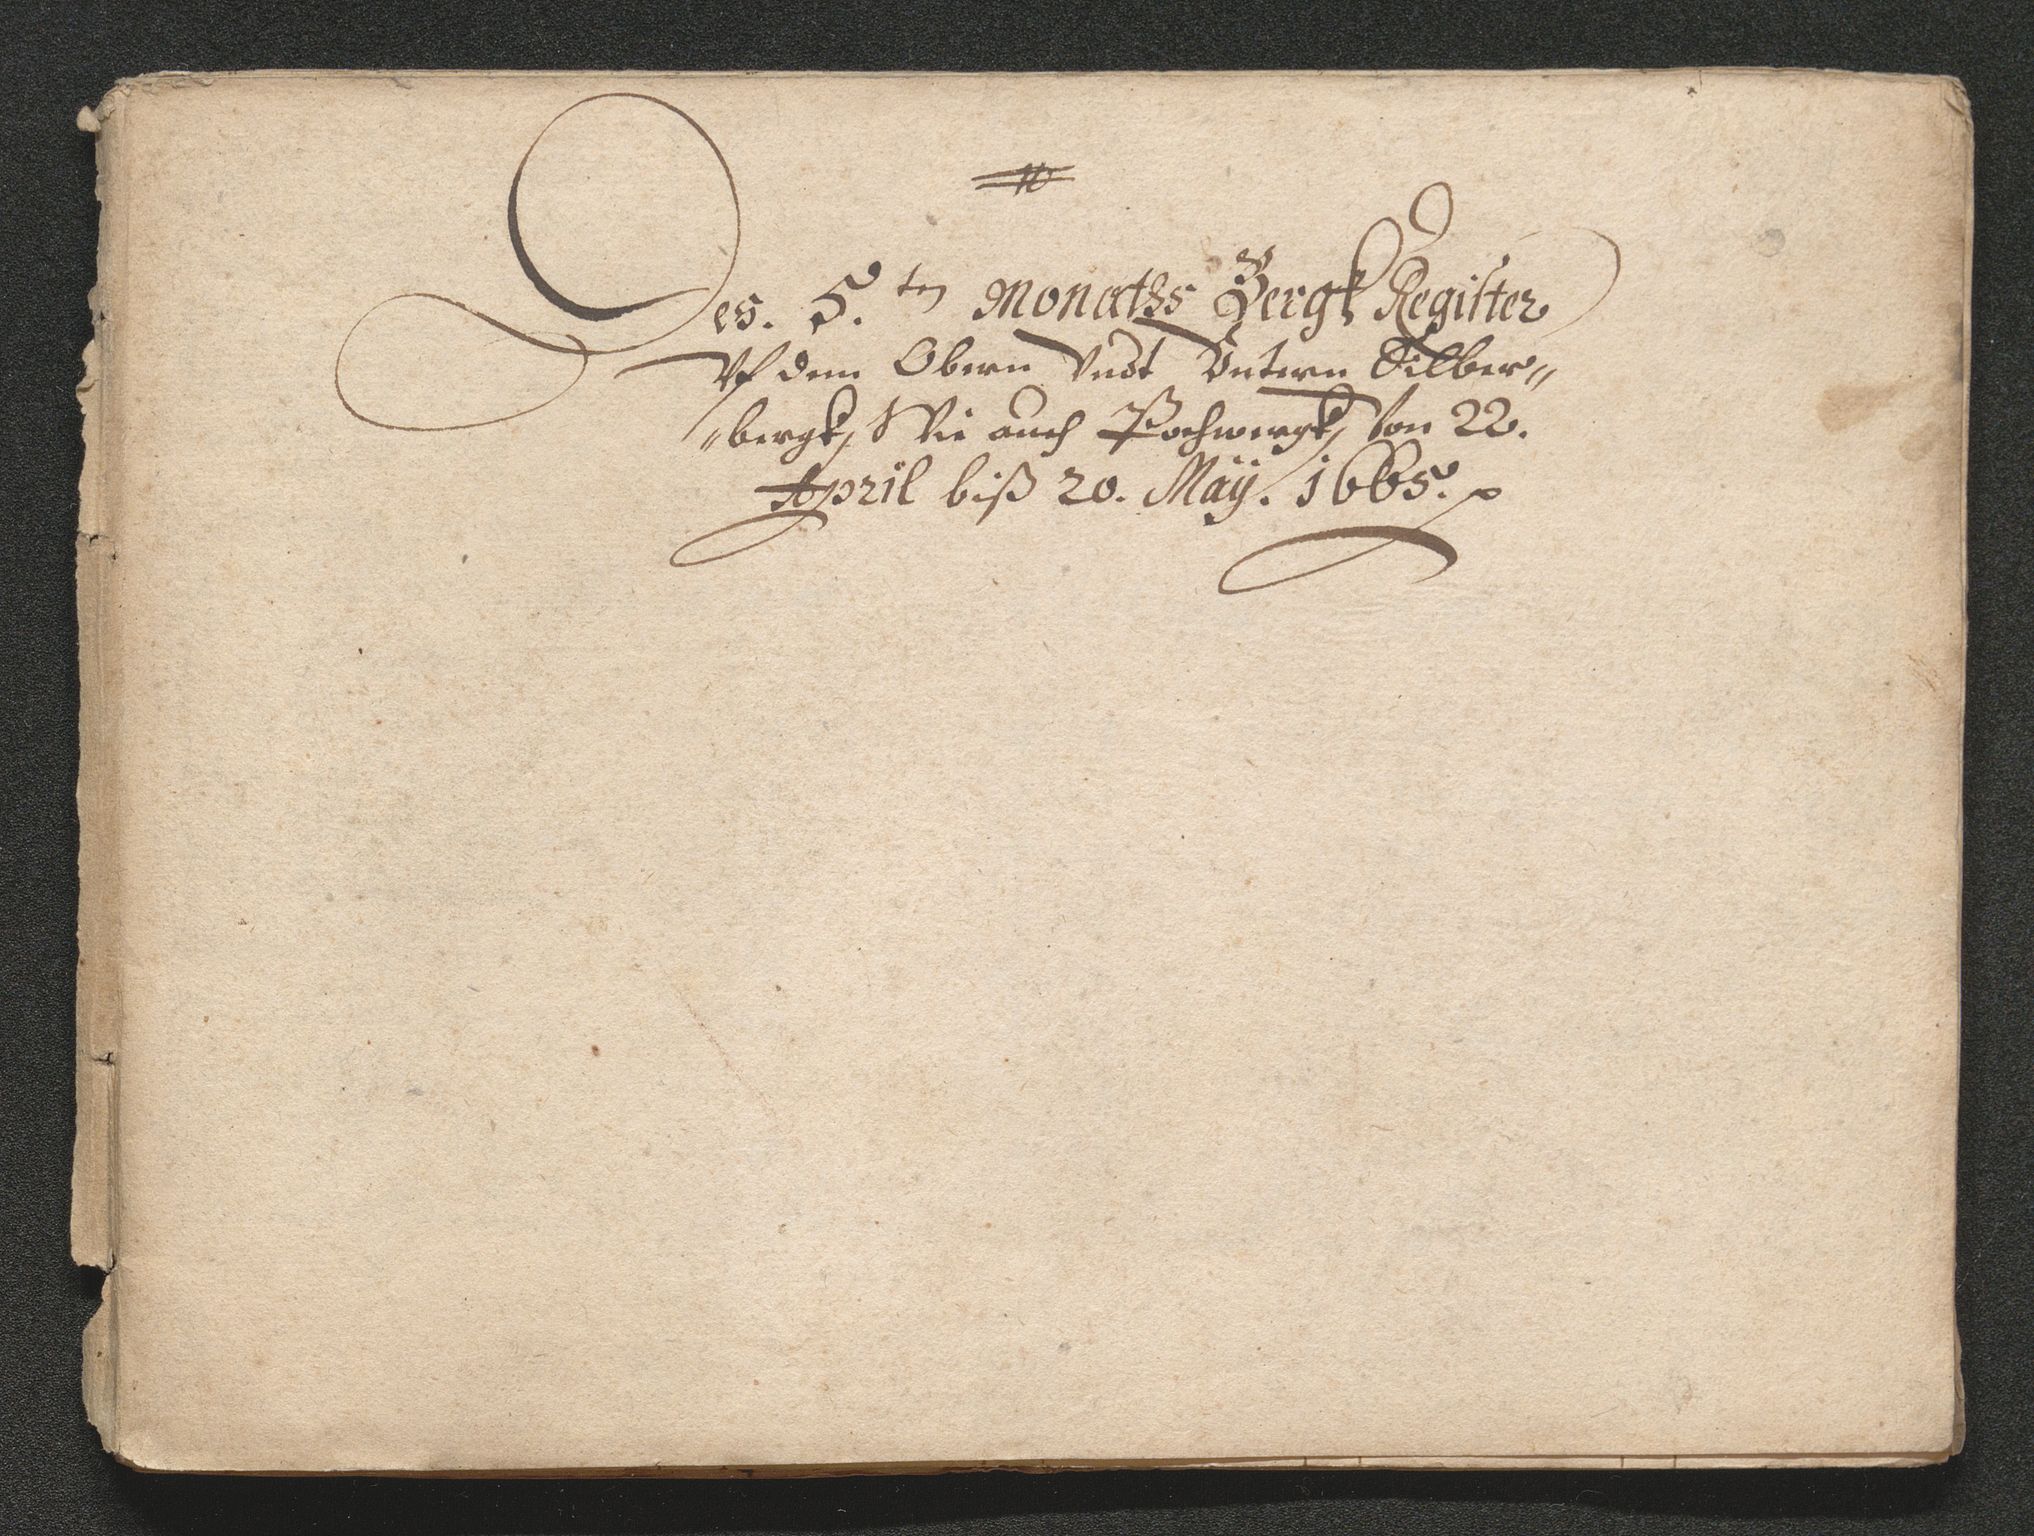 Des. 5.ten Monaths Bergk Register
Vf dem Obern Vndt Vntern Silber„
„bergk, Wie auch Pochwergk, Von 22.
April biß 20. Maÿ. 1665.